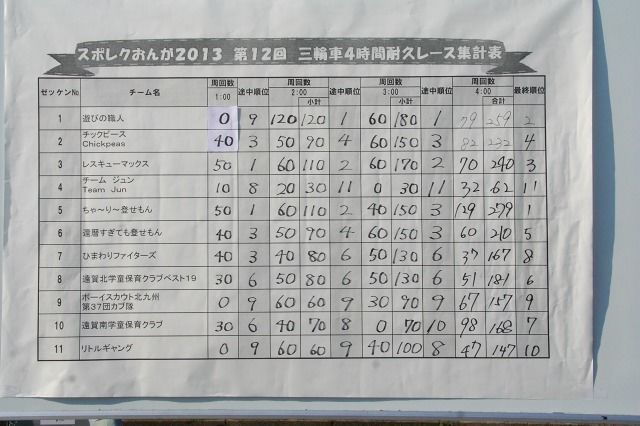 スポレクおんが2013 第12回 三輪車4時間耐久レース集計表
ゼッケンNo チーム名 周回数 1:00 途中順位 周回数 2:00 小計 途中順位 周回数 3:00 小計 途中順位 周回数 4:00 合計 最終順位
1 遊びの職人 0 9 120 120 1 60 180 1 79 259 2
2 チックピース Chickpeas 40 3 50 90 4 60 150 3 82 232 4
3 レスキューマックス 50 1 60 110 2 60 170 2 70 240 3
4 チーム ジュン Team Jun 10 8 20 30 11 0 30 11 32 62 11
5 ちゃ~り~登せもん 50 1 60 110 2 40 150 3 129 279 1
6 還暦すぎても登せもん 40 3 50 90 4 60 150 3 60 210 5
7 ひまわりファイターズ 40 3 40 80 6 50 130 6 37 167 8
8 遠賀北学童保育クラブベスト19 30 6 50 80 6 50 130 6 51 181 6
9 ボーイスカウト北九州 第37団カブ隊 0 9 60 60 9 30 90 9 67 157 9
10 遠賀南学童保育クラブ 30 6 40 70 8 0 70 10 98 168 7
11 リトルギャング 0 9 60 60 9 40 100 8 47 147 10